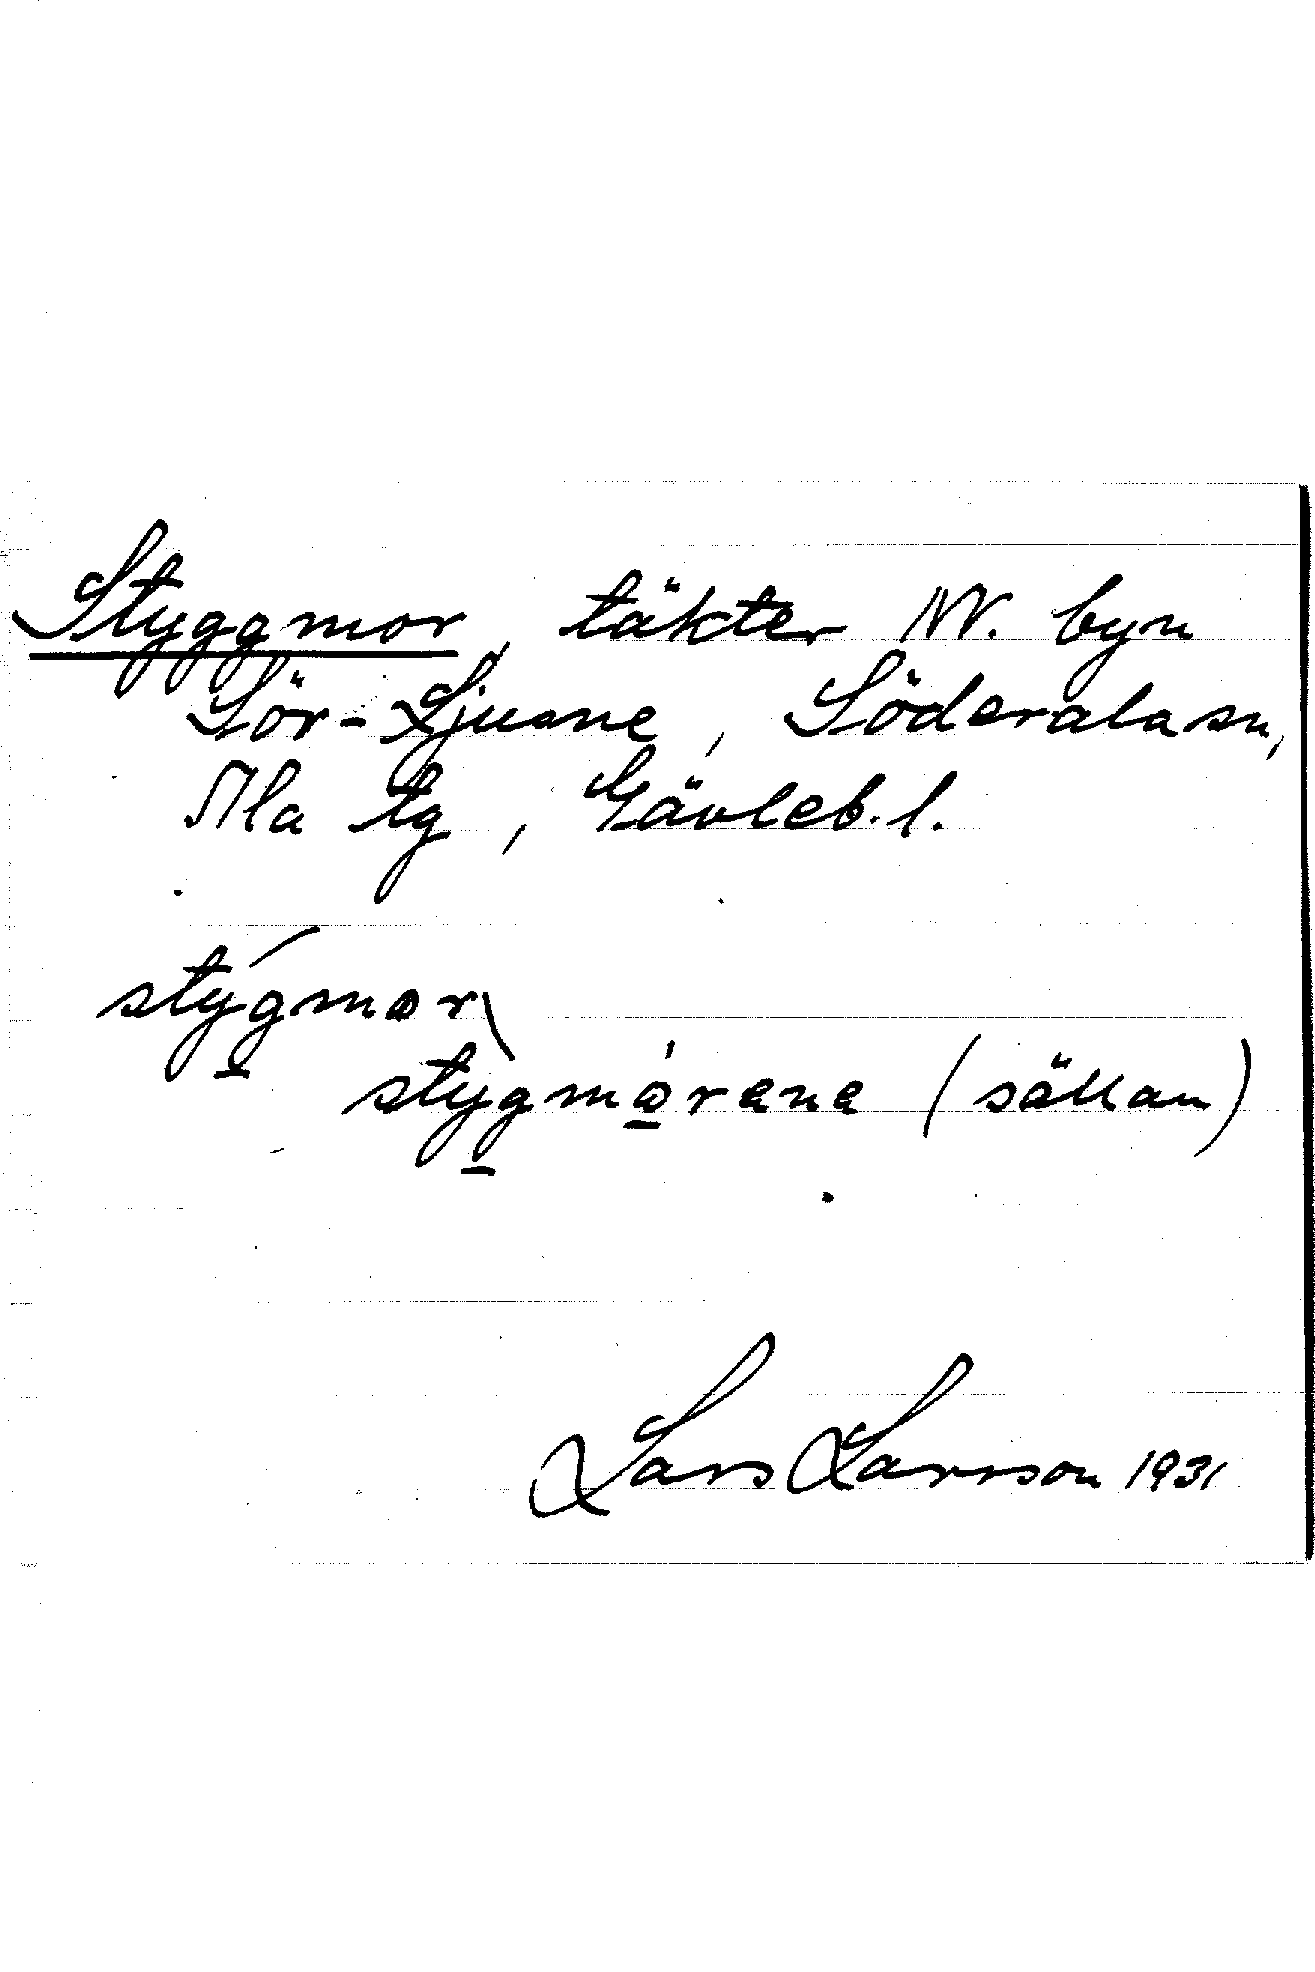 Styggmor, täkter NV. byn
Sör-Ljusne, Söderala sn,
Ala tg, Gävleb. l.
stýgmor
stygmórana (sällan)
Lars Larsson 1931